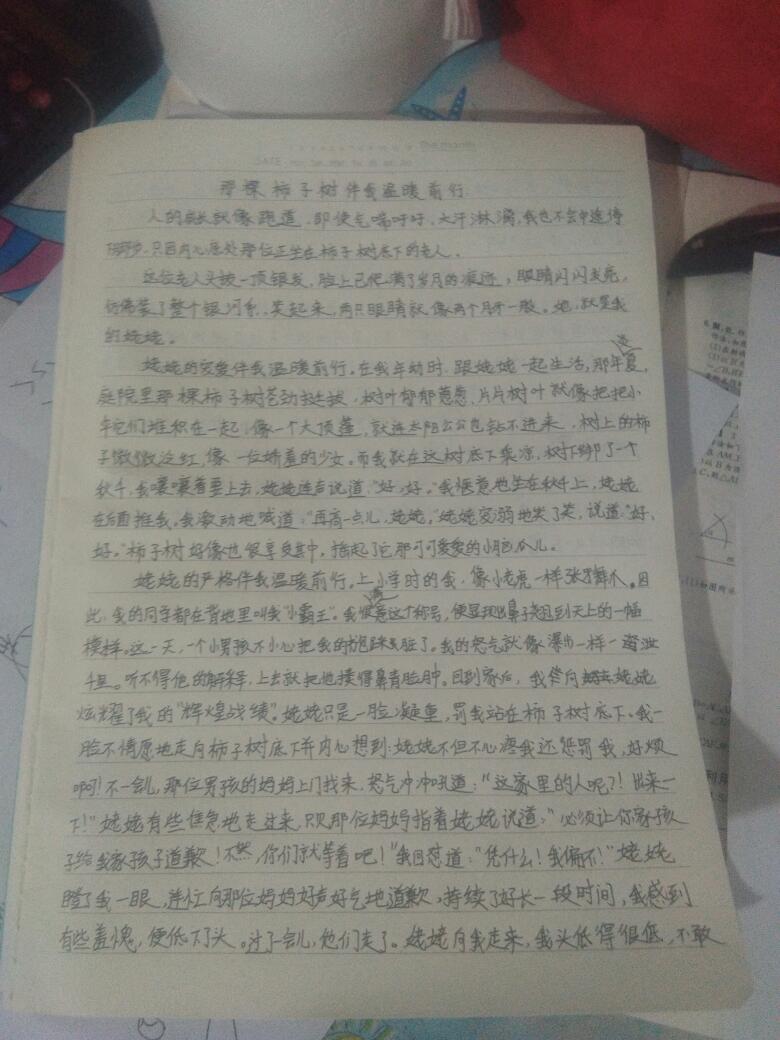 DATE
那棵柿子树伴我温暖前行
人的成长就像跑道，即使气喘吁吁，大汗淋漓，我也不会中途停
脚步，只因内心底处那位正坐在柿子树底下的老人。
这位老人头披一顶银发，脸上已爬满了岁月的痕迹，眼睛闪闪发亮，
仿佛装了整个银河系，笑起来，两只眼睛就像两个月牙一般。她，就是我
的姥姥。
姥姥的宠爱伴我温暖前行。在我年幼时，跟姥姥一起生活，那年夏，
庭院里那棵柿子树苍劲挺拔，树叶郁郁葱葱，片片树叶就像把把小
伞它们堆积在一起，像一个大顶蓬，就连太阳公公也钻不进来，树上的柿
子微微泛红，像一位娇羞的少女。而我就在这树底下乘凉，树下绑了一个
秋千，我嚷嚷着要上去，姥姥连声说道：“好，好。”我惬意地坐在秋千上，姥姥
在后面推我。我激动地喊道：“再高一点儿，姥姥。”姥姥宠溺地笑了笑，说道：“好，
好。”柿子树好像也很享受其中，摇起了它那可可爱爱的小脑瓜儿。
姥姥的严格伴我温暖前行。上小学时的我，像小老虎一样张牙舞爪。因
此，我的同学都在背地里叫我“小霸王”。我很满意这个称号，便显现出鼻子翘到天上的一幅
模样。这一天，一个小男孩不小心把我的鞋踩脏了。我的怒气就像瀑布一样一泻
千里。听不得他的解释，上去就把他揍得鼻青脸肿。回到家后，我向姥姥
炫耀了我的“辉煌战绩”。姥姥只是一脸凝重，罚我站在柿子树底下。我一
脸不情愿地走向柿子树底下并内心想到：姥姥不但不心疼我还惩罚我，好烦
啊！不一会儿，那位男孩的妈妈上门找来，怒气冲冲吼道：“这家里的人呢？！出来一
下！”姥姥有些焦急地走过来，只见那位妈妈指着姥姥说道：“必须让你家孩
子给我家孩子道歉！不然，你们就等着吧！”我回怼道：“凭什么！我偏不！”姥姥
瞪了我一眼，连忙向那位妈妈好声好气地道歉，持续了好长一段时间，我感到
有些羞愧，便低下了头。过了一会儿，他们走了。姥姥向我走来，我头低得很低，不敢